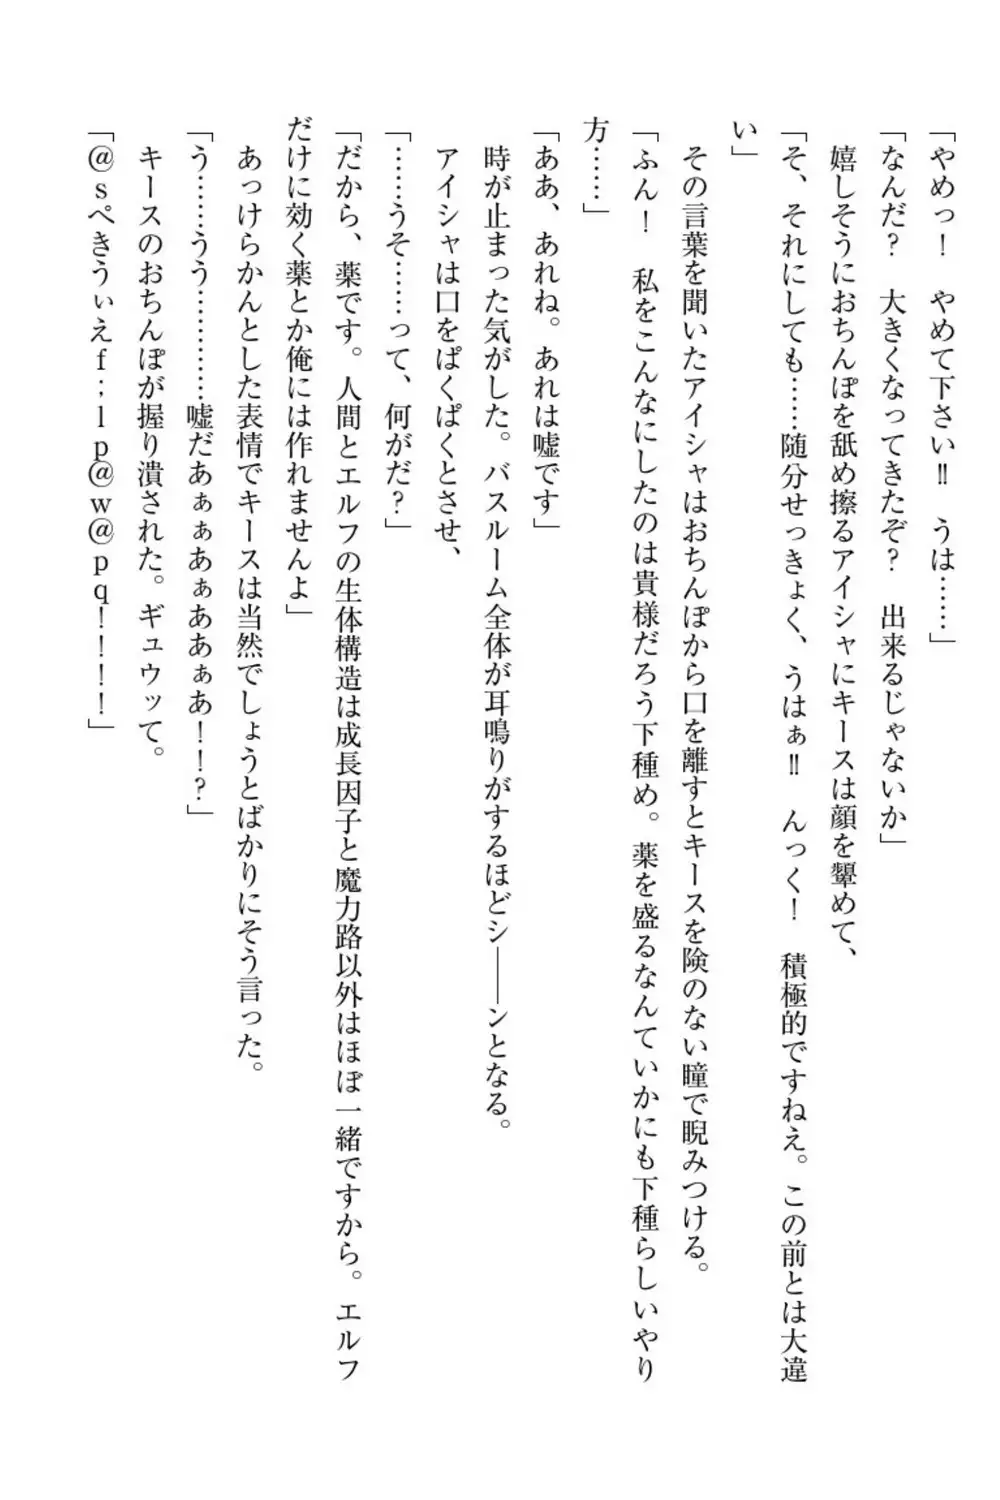 「やめっ！　やめて下さい‼　うは……」
「なんだ？　大きくなってきたぞ？　出来るじゃないか」
　嬉しそうにおちんぽを舐め擦るアイシャにキースは顔を顰めて、
「そ、それにしても……随分せっきょく、うはぁ‼　んっく！　積極的ですねえ。この前とは大違
い」
　その言葉を聞いたアイシャはおちんぽから口を離すとキースを険のない瞳で睨みつける。
「ふん！　私をこんなにしたのは貴様だろう下種め。薬を盛るなんていかにも下種らしいやり
方……」
「ああ、あれね。あれは嘘です」
　時が止まった気がした。バスルーム全体が耳鳴りがするほどシ――ンとなる。
　アイシャは口をぱくぱくとさせ、
「……うそ……って、何がだ？」
「だから、薬です。人間とエルフの生体構造は成長因子と魔力路以外はほぼ一緒ですから。エルフ
だけに効く薬とか俺には作れませんよ」
　あっけらかんとした表情でキースは当然でしょうとばかりにそう言った。
「う……うう…………嘘だあぁぁあぁああぁあ！！？」
　キースのおちんぽが握り潰された。ギュウッて。
「＠ｓぺきうぃえｆ；ｌｐ＠ｗ＠ｐｑ！！！！」